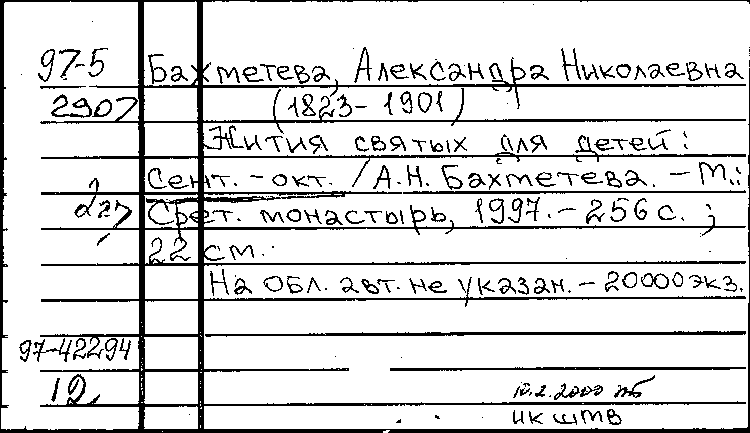 97-5 Бахметева, Александра Николаевна
2907 (1823- 1901)
Жития святых для детей:
Сент. - окт. / А.Н. Бахметева. - М.:
227 Срет. монастырь, 1997. - 256 с. ;
22 см.
На обл. авт. не указан. - 20000 экз.
97-42294
12 10.2.2000
ИК ШТВ